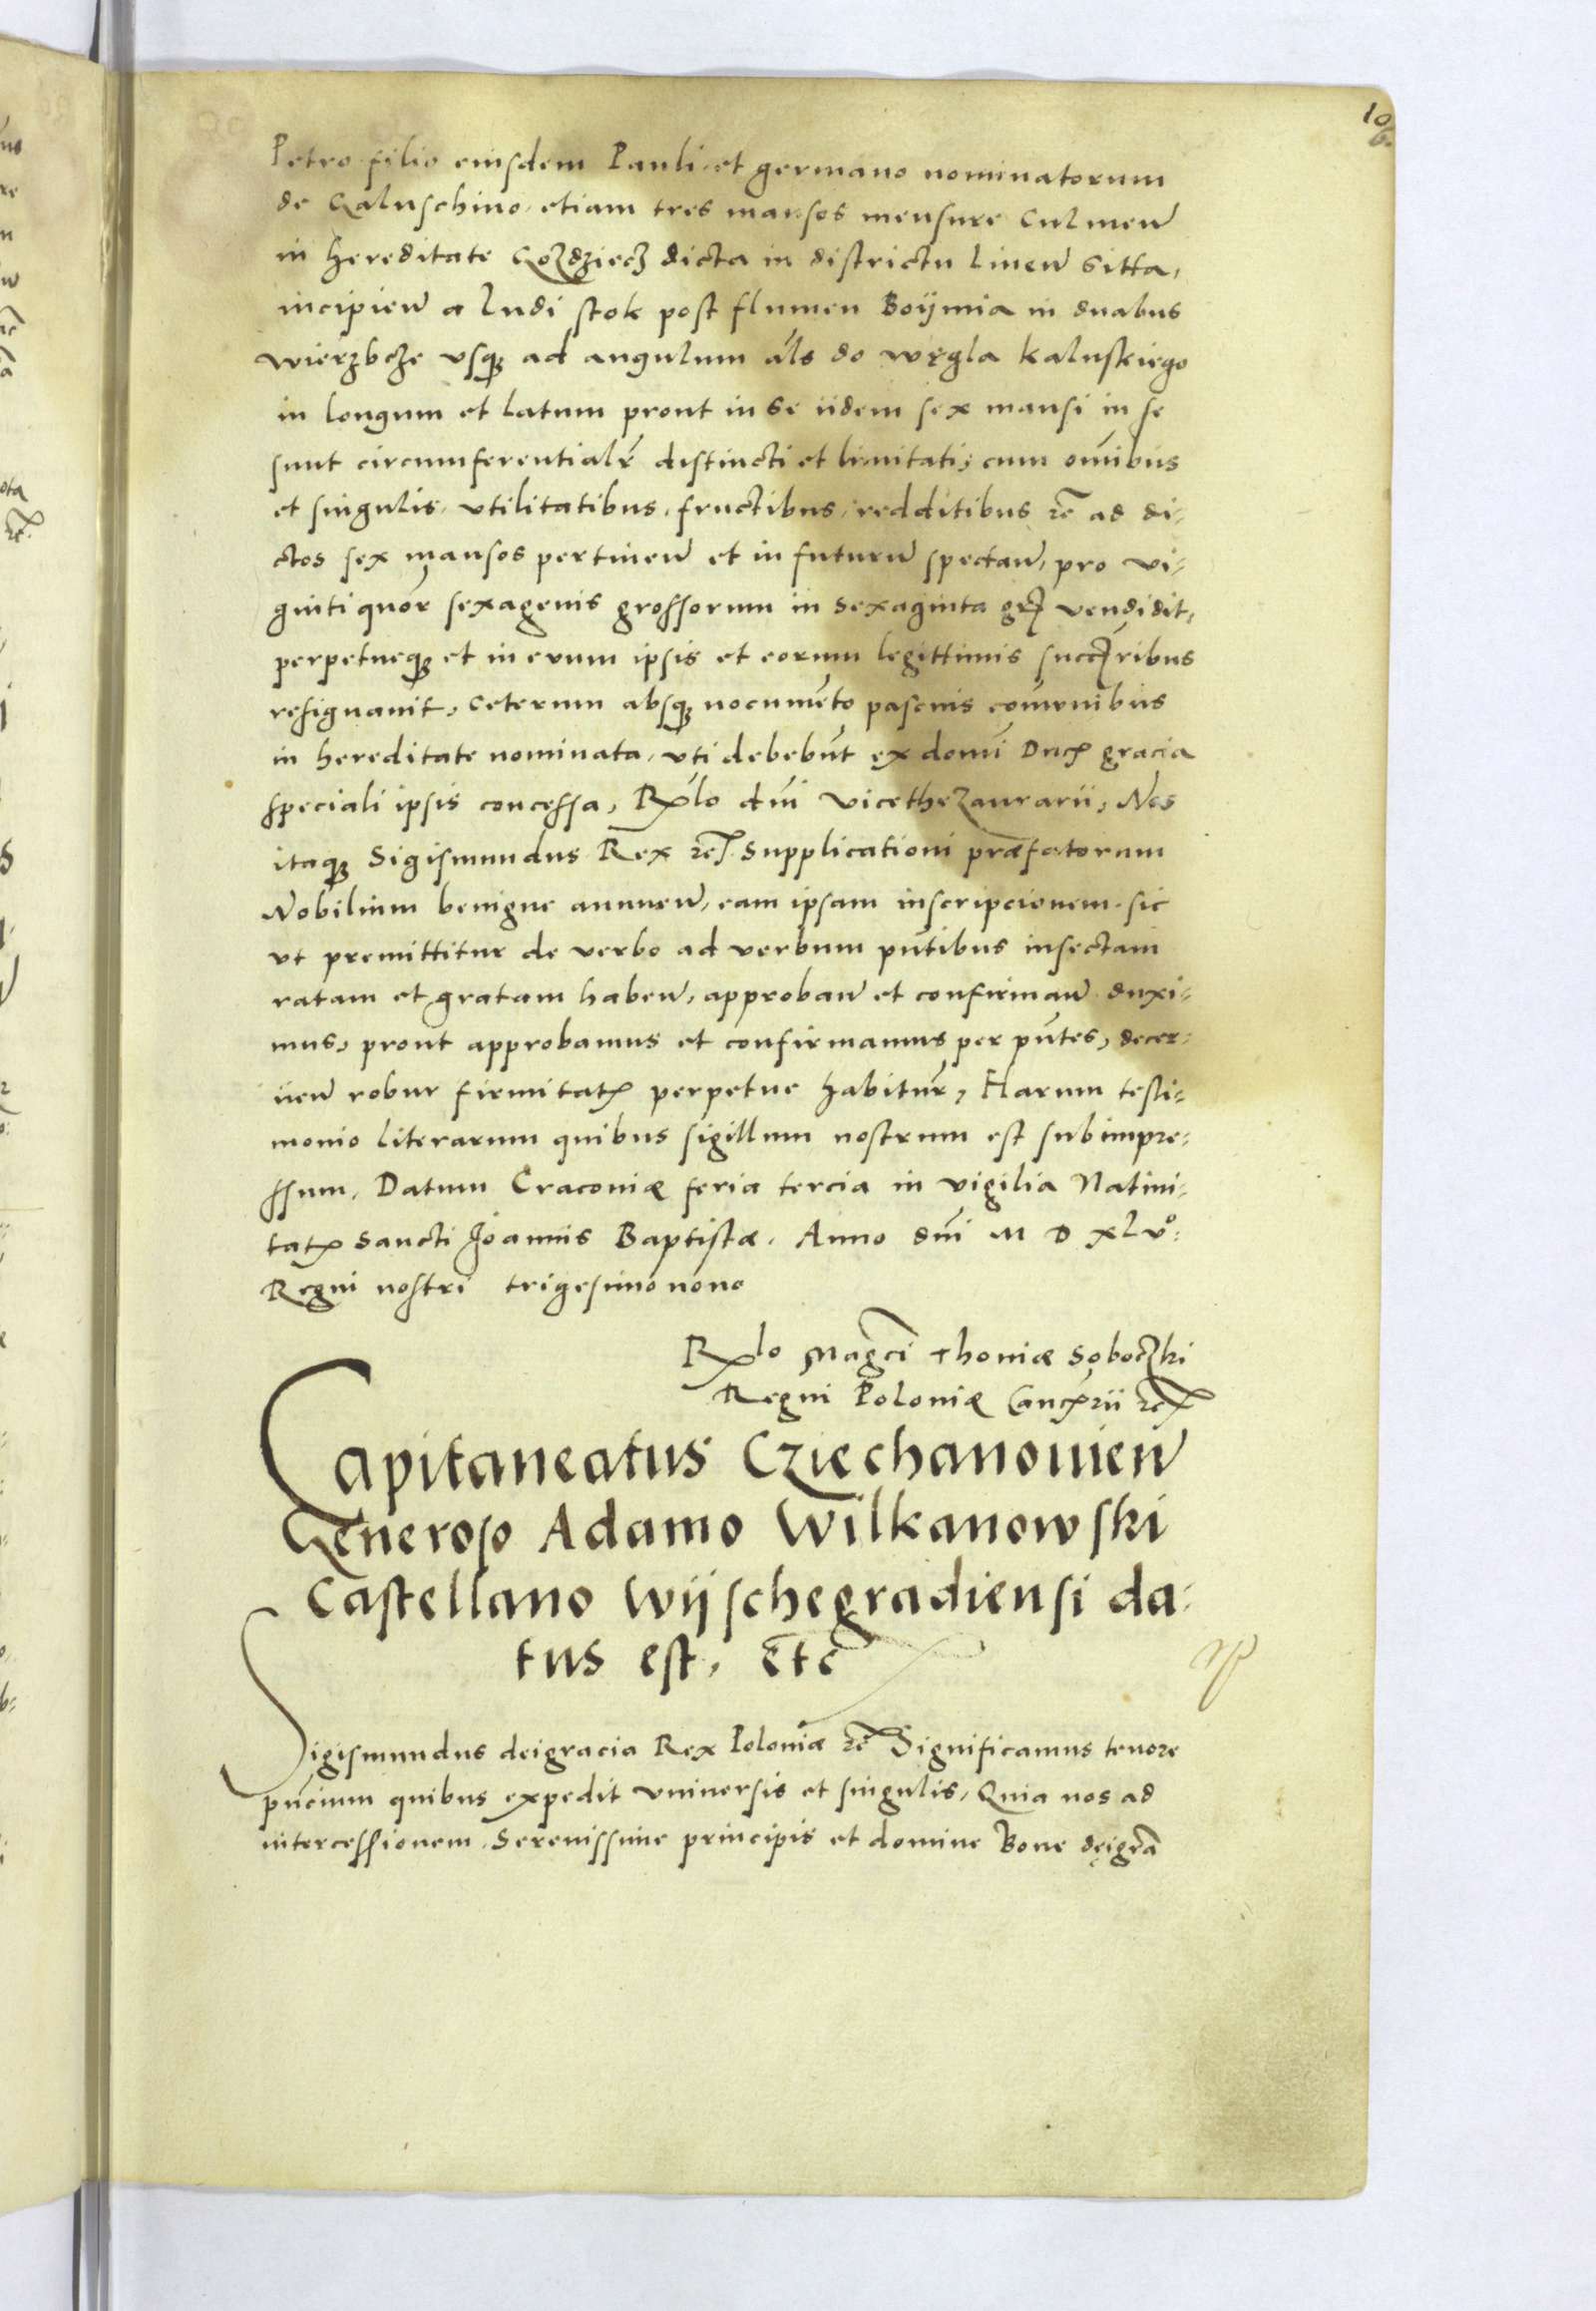 10
6.
Petro filio eiusdem Pauli et germano nominatorum
de Galuschino, etiam tres mansos mensure Culmen̄
in hereditate Gozdziecz dicta in districtu Liuen̄ sitta,
incipien̄ a Ludi stok post flumen Boÿmia in duabus
wierzbcze vsq₃ ad angulum al̄s do węgla kaluskiego
in longum et latum prout in se iidem sex mansi in se
sunt circumferentialr̄ distincti et limitati, cum om̄ibus
et singulis, vtilitatibus, fructibus, redditibus ꝛc̄ ad di-
ctos sex mansos pertinen̄ et in futurū spectan̄, pro vi-
ginti quor̄ sexagenis grossorum in sexaginta gr̄ vendidit,
perpetueq₃ et in evum ipsis et eorum legittimis succꝛibus
resignauit, Ceterum absq₃ nocumēto pascuis com̄unibus
in hereditate nominata, vti debebūt ex domī Ducꝭ gracia
speciali ipsis concessa, Rl̄o dn̄i vicethezaurarii, Nos
itaq₃ Sigismundus Rex ꝛc̄ supplicationi præfatorum
Nobilium benigne annuen̄, eam ipsam inscripcionem sic
vt premittitur de verbo ad verbum pn̄tibus insectam
ratam et gratam haben̄, approban̄ et confirman̄ duxi-
mus, prout approbamus et confirmamus per pn̄tes, decer-
nen̄ robur firmitatꝭ perpetue habitur̄, Harum testi-
monio literarum quibus sigillum nostrum est subimpre-
ssum, Datum Cracoviæ feria tercia in vigilia Natiui-
tatꝭ Sancti Joannis Baptistæ, Anno dn̄i M D xlvº.
Regni nostri trigesimo nono
Rl̄o Magc̄i Thomæ Soboczki
Regni Poloniæ Cancꝭrii ꝛc̄
Capitaneatus Cziechanouien̄
Generoso Adamo Wilkanowski
Castellano Wijschegradiensi da-
tus est, Etc̄
Sigismundus deigracia Rex Poloniæ ꝛc̄ Significamus tenore
pn̄cium quibus expedit vniuersis et singulis, Quia nos ad
intercessionem Serenissime principis et domine Bone deigrā